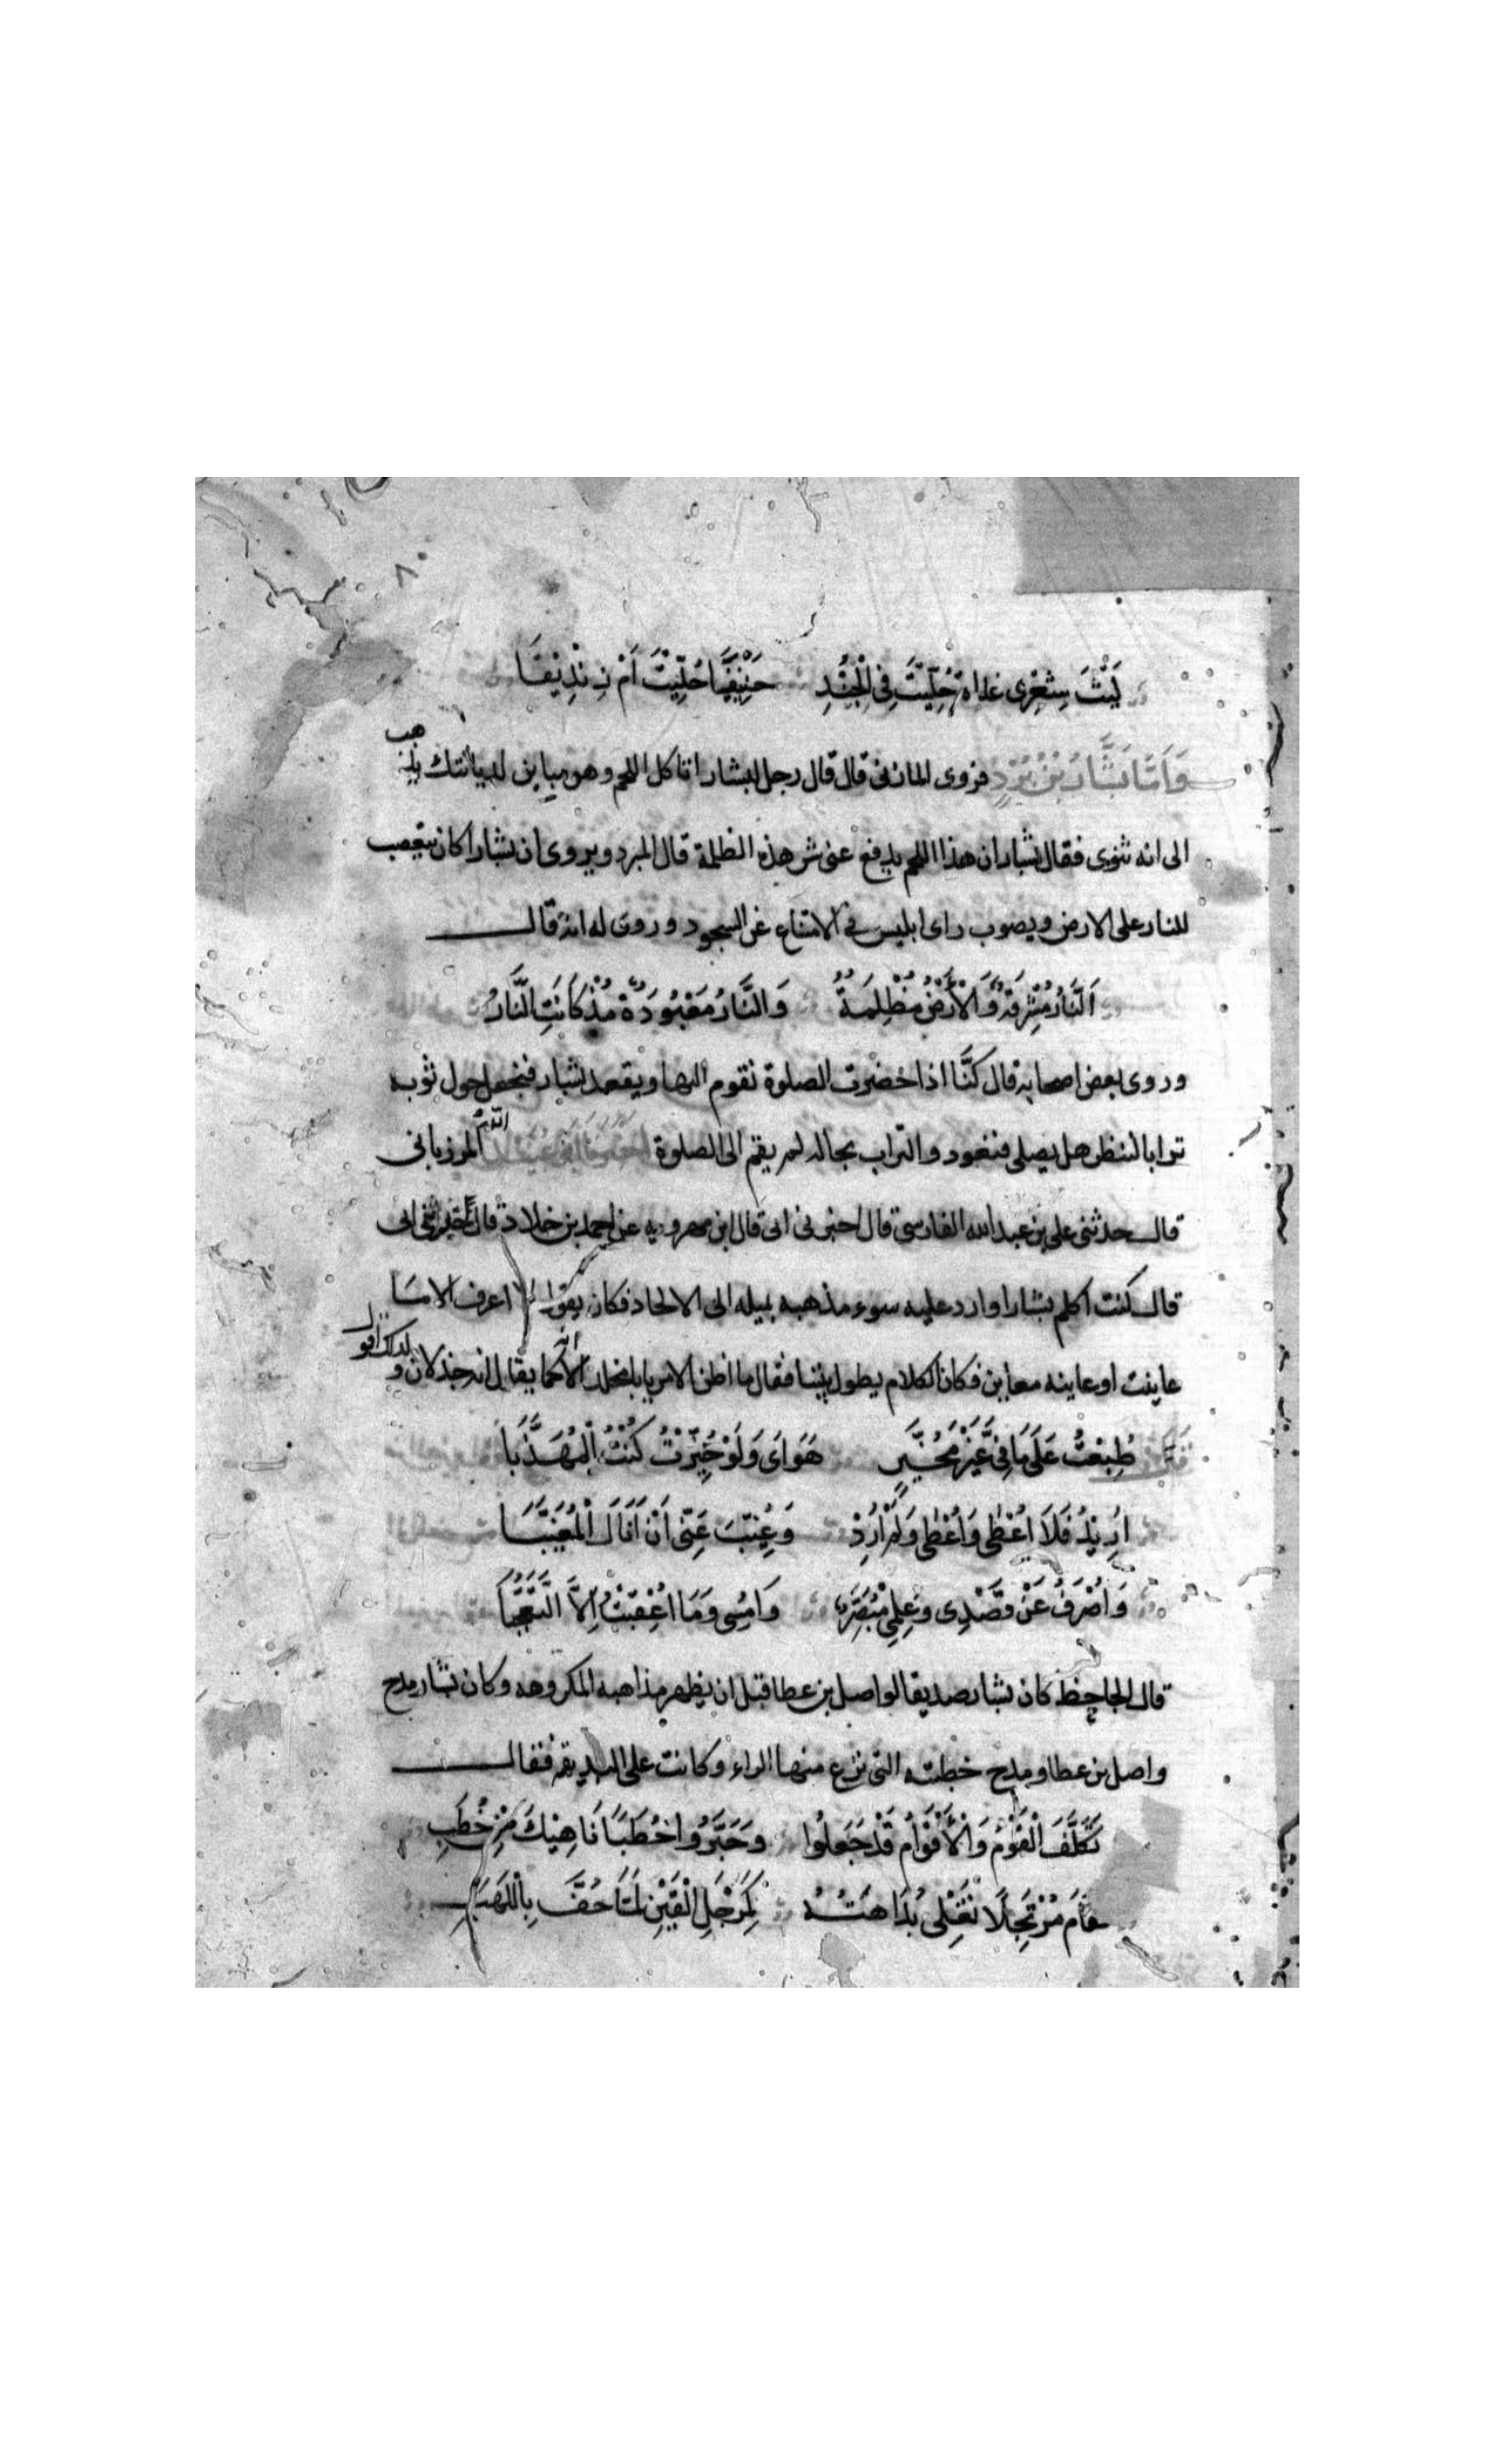 ٨
لَيْتَ شِعْرِى غداة حُلِّيتَ فِى الْجِيْدِ حَنِيْفًا حُلِّيْتَ اَمْ زِنْدِيْقَا
وَاَمَّا بَشَّارُ بْنُ بُرْدٍ فروى المازنى قال قال رجل لبشار اتاكل اللحم وهو مباين لديانتك يذهب
الى انه ثنوى فقال بشار ان هذا اللحم يدفع عنى شر هذه الظلمة قال المبرد ويروى ان بشارا كان يتعصب
للنار على الارض ويصوب راى ابليس فى الامتناع عن السجود وروى له انه قال
اَلنَّارُ مُشْرِقَةٌ وَالْاَرْضُ مُظْلِمَةٌ وَالنَّارُ مَعْبُوْدَةٌ مُذْ كَانَتِ النَّارُ
وروى بعض اصحابه قال كنَّا اذا حضرت الصلوة نقوم اليها ويقعد بشار فنجعل حول ثوبه
ترابا لننظر هل يصلى فنعود والتراب بحاله لم يقم الى الصلوة اخبرنا ابو عبيد الله المرزبانى
قال حدثنى على بن عبد الله الفارسى قال اخبرنى ابى قال ابن مهرويه عن احمد بن خلاد قال اخبرنى ابى
قال كنت اكلم بشارا وارد عليه سوء مذهبه بميله الى الالحاد فكان يقول لا اعرف الا ما
عاينت او عاينه معاين فكان الكلام يطول بيننا فقال ما اظن الامر يابا مخلد الا كما يقال انه خذلان ولذلك اقول
طُبِعْتُ عَلَى مَا فِىَّ غَيْرَ مُخَيَّرٍ هَوَاىَ وَلَوْ خُيِّرْتُ كُنْتُ الْمُهَذَّبَا
اُرِيْدُ فَلَا اُعْطٰى وَاُعْطٰى وَلَمْ اُرِدْ وَغُيِّبَ عَنِّى اَنْ اَنَالَ الْمُغَيَّبَا
وَاُصْرَفُ عَنْ قَصْدِى وَعِلْمِىْ مُبْصِرٌ وَاُمْسِى وَمَا اُعْقِبْتُ اِلَّا التَّعَجُّبَا
قال الجاحظ كان بشار صديقا لواصل بن عطا قبل ان يظهر مذاهبه المكروهه وكان بشار مدح
واصل بن عطا ومدح خطبته التى نزع منها الراء وكانت على البديهة فقال
تَكَلَّفَ الْقَوْمُ وَالْاَقْوَامُ قَدْ جَعَلُوا وَحَبَّرُوا خُطَبًا نَاهِيْكَ مِنْ خُطَبِ
فقَامَ مُرْتَجِلًا تَغْلِى بُدَاهَتُهُ كَمِرْجَلِ الْقَيْنِ لَمَّا حُفَّ بِاللَّهَبِ